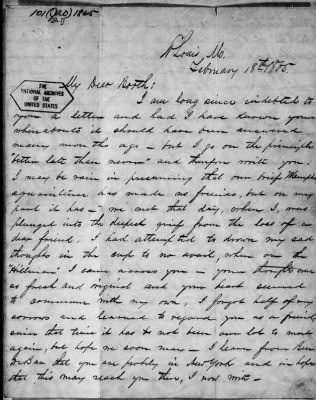 101 (JAO) 1865
THE
NATIONAL ARCHIVES
OF THE
UNITED STATES
St Louis, Mo.
February 18th 1865.
My Dear Booth:
I am long since indebted to
you a letter and had I have known your
whereabouts it should have been answered
many mos this ago - but I go on the principle
"better late than never" and therefore write you.
I may be vain in presuming that our brief Memphis
acquaintance has made us friends, but on my
part it has - we met that day, when I, was
plunged into the deepest grief from the loss of a
dear friend. I had attempted to drown my sad
thoughts in the cup to no avail, when on the
"Hillman" I came across you - your thoughts were
so fresh and original and your heart seemed
to commune with my own, I forgot half of my
sorrows and learned to regard you as a friend,
since that time it has not been our lot to meet
again, but hope we soon may - I learn from Ben
DeBar that you are probly in New York and in hopes
that this may reach you there, I now write -